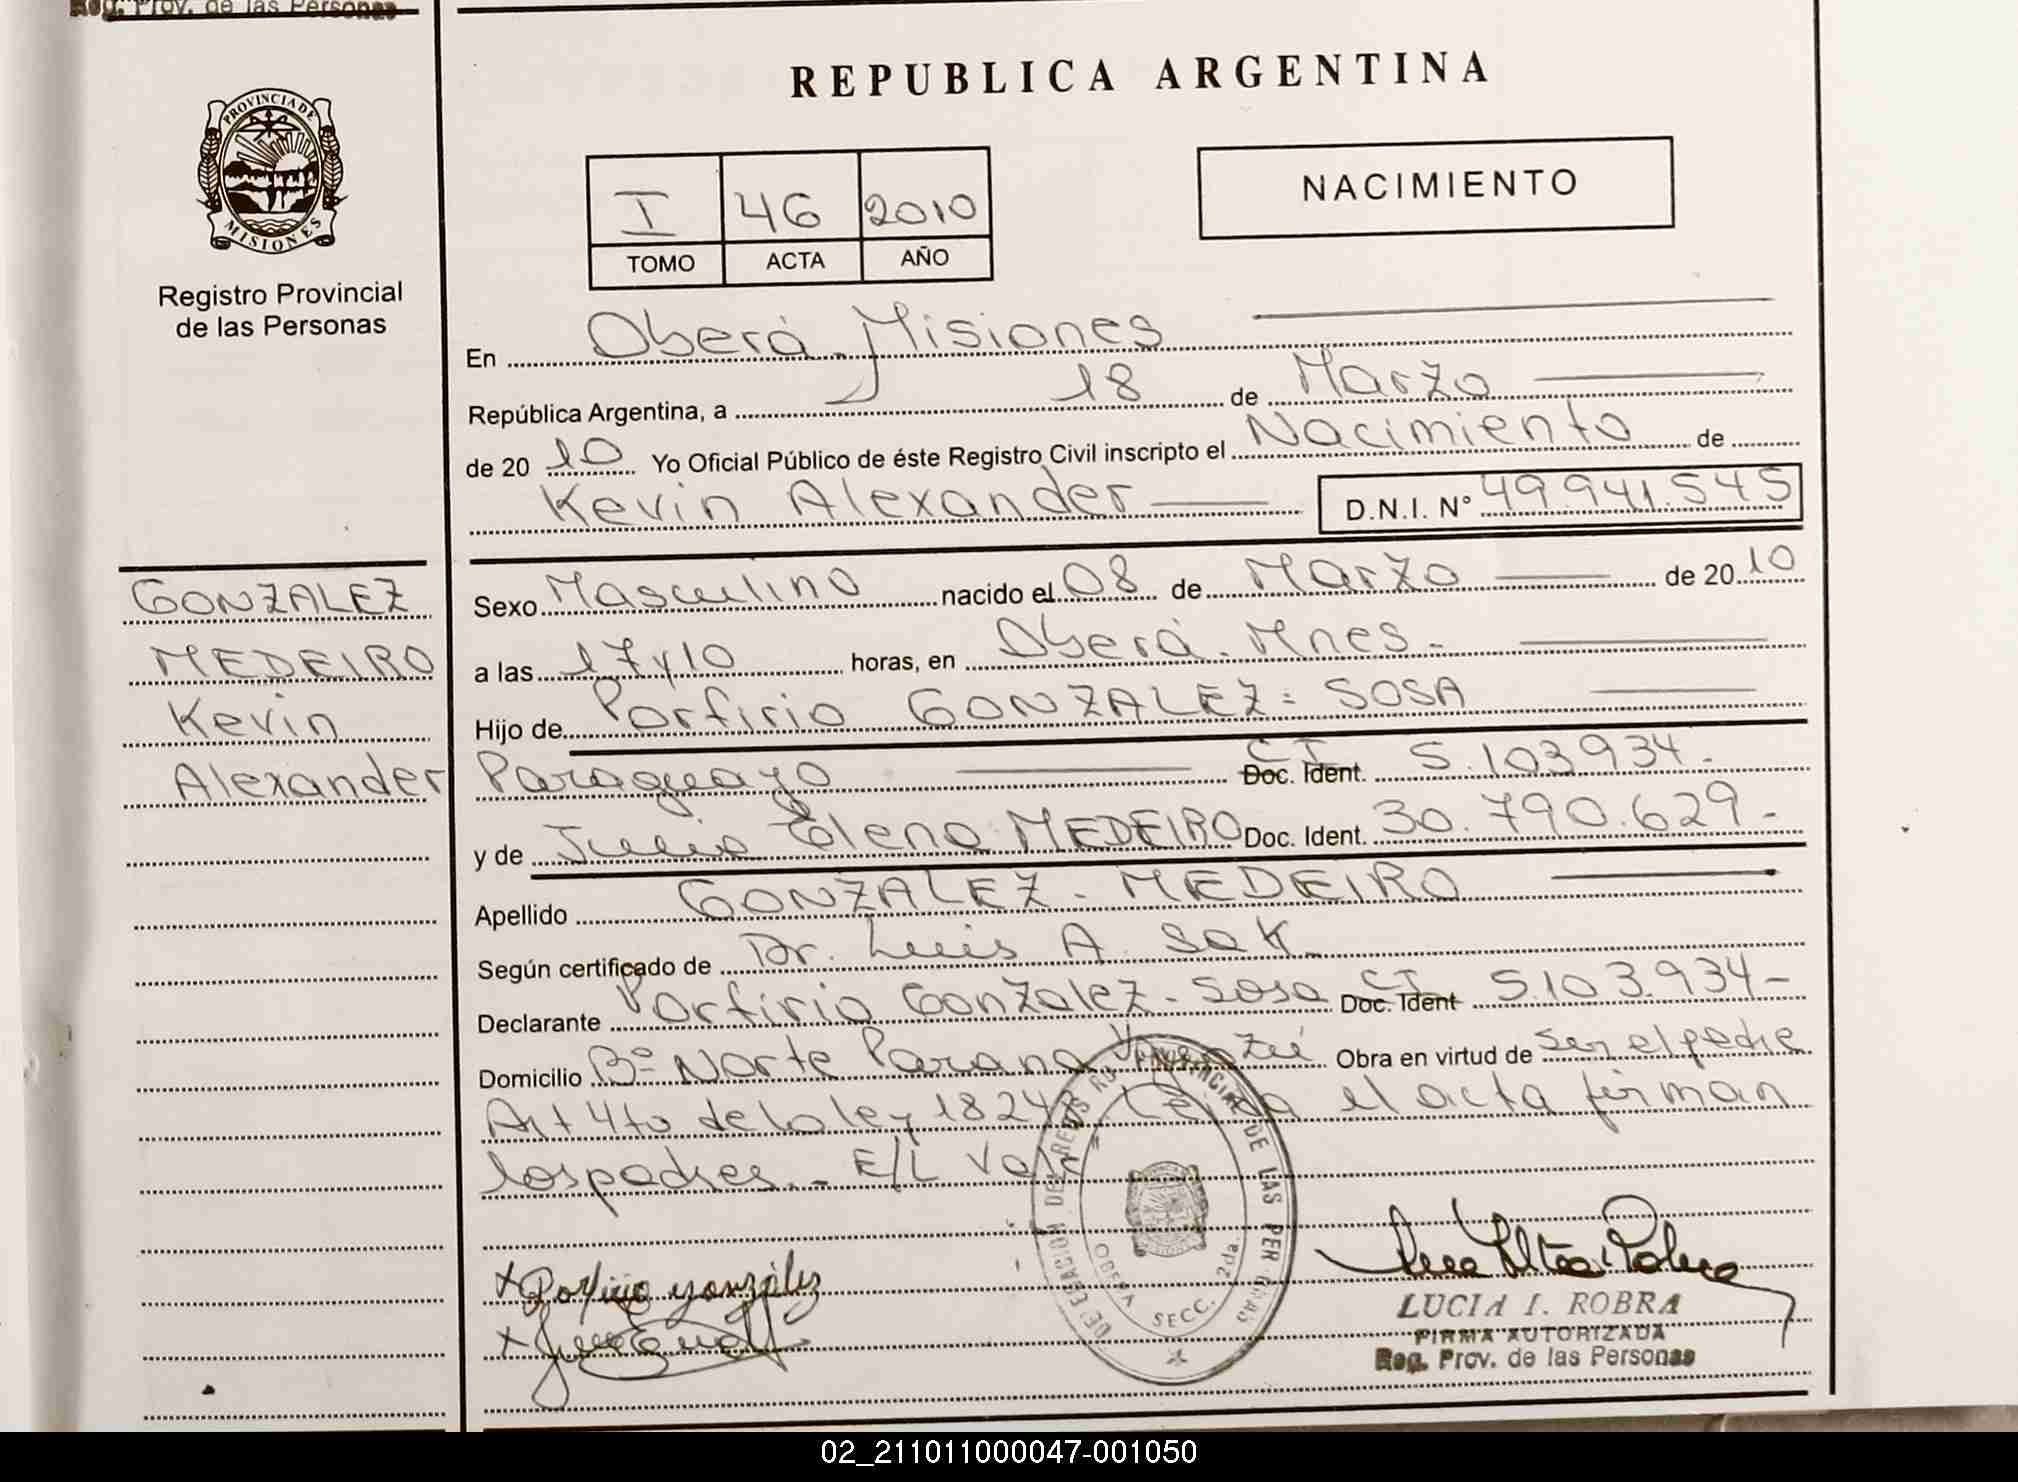 Reg. Prov. de las Personas
REPUBLICA ARGENTINA
PROVINCIA DE
MISIONES
Registro Provincial
de las Personas
I 46 2010
TOMO ACTA AÑO
NACIMIENTO
En Oberá - Misiones
República Argentina, a 18 de Marzo
de 20 10 Yo Oficial Público de éste Registro Civil inscripto el Nacimiento de
Kevin Alexander D.N.I. N° 49.941.545
GONZALEZ
MEDEIRO
Kevin
Alexander
Sexo Masculino nacido el 08 de Marzo de 20 10
a las 17 y 10 horas, en Oberá - Mnes -
Hijo de Porfirio GONZALEZ = SOSA
Paraguayo CI Doc. Ident. 5.103.934 -
y de Elena MEDEIRO Doc. Ident. 30.790.629 -
Apellido GONZALEZ - MEDEIRO
Según certificado de Dr. Luis A. Sak
Declarante Porfirio Gonzalez - Sosa CI Doc. Ident 5.103.934 -
Domicilio B° Norte Parana Obra en virtud de ser el padre
Art 4to de la ley 18248 Leida el acta firman
los padres - E/L Vale
DELEGACION DEL REGISTRO PROVINCIAL DE LAS PERSONAS
OBERA SECC. 2da.
x Porfirio gonzález
x
LUCIA I. ROBRA
FIRMA AUTORIZADA
Reg. Prov. de las Personas
02_211011000047-001050